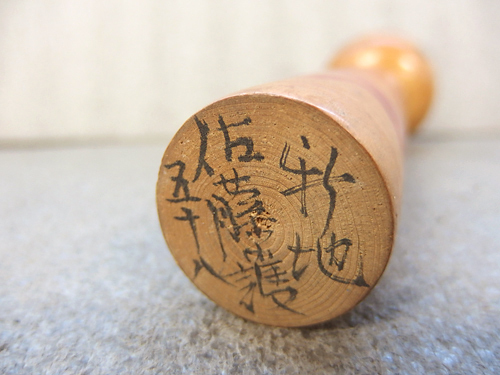 新地
佐藤護
五十八